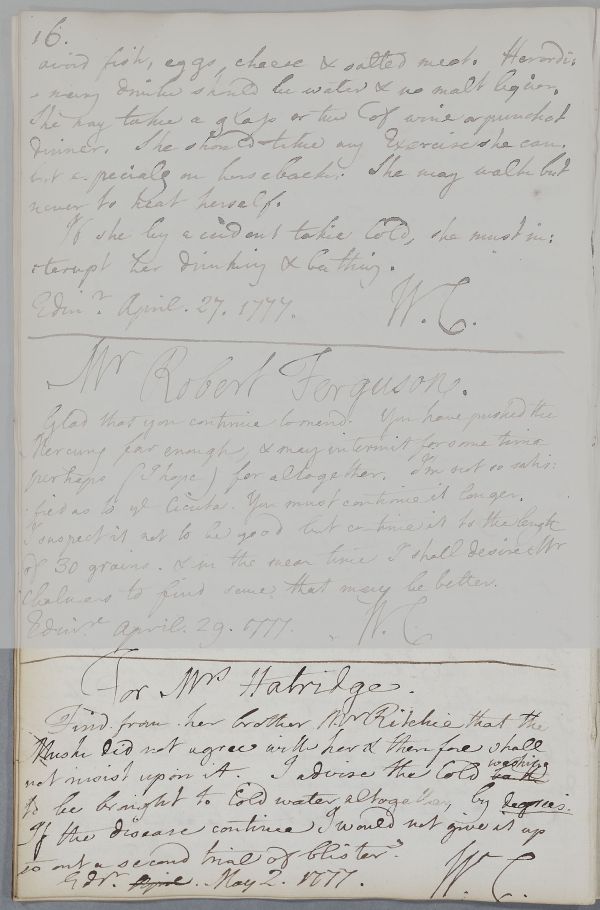 16.
avoid fish, eggs, cheese & salted meat. Her ordi:
:nary drink should be water & no malt liquor.
She may take a glass or two of wine or punch at
dinner. She should take any Exercise she can,
but especialy on horseback. She may walk but
never to heat herself.
If she by accident take Cold, she must in:
:terrupt her drinking & bathing.
Edinr. April. 27. 1777. W. C.
Mr Robert Ferguson.
Glad that you continue to mend. You have pushed the
Mercury far enough, & may intermit for some time
perhaps (I hope) for altogether. I'm not so satis:
:fied as to ye Cicuta. You must continue it longer.
I suspect it not to be good but continue it to the length
of 30 grains. & in the mean time I shall desire Mr
Chalmers to find some that may be better.
Edinr. April. 29. 1777. W. C.
For Mrs Hatridge.
Find from her brother Mr Ritchie that the
Musk did not agree with her & therefore shall
not insist upon it. I advise the Cold washing
to be brought to Cold water altogether, by degrees.
If the disease continue I would not give it up
without a second trial of blisters.
Edr. April. May 2. 1777. W. C.